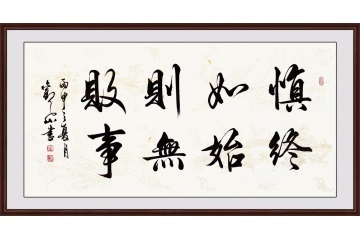 慎終
如始
則無
敗事
丙申之夏月
山書